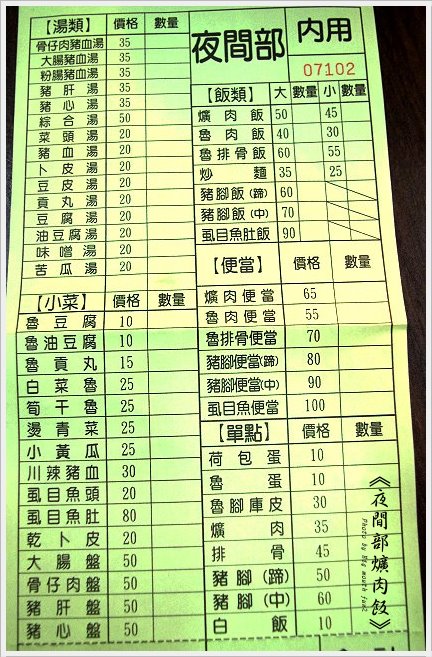 【湯類】 價格 數量
骨仔肉豬血湯 35
大腸豬血湯 35
粉腸豬血湯 35
豬肝湯 35
豬心湯 35
綜合湯 50
菜頭湯 20
豬血湯 20
卜皮湯 20
豆皮湯 20
貢丸湯 20
豆腐湯 20
油豆腐湯 20
味噌湯 20
苦瓜湯 20
【小菜】 價格 數量
魯豆腐 10
魯油豆腐 10
魯貢丸 15
白菜魯 25
筍干魯 25
燙青菜 25
小黃瓜 25
川辣豬血 30
虱目魚頭 20
虱目魚肚 80
乾卜皮 20
大腸盤 50
骨仔肉盤 50
豬肝盤 50
豬心盤 50
夜間部 內用
07102
【飯類】 大 數量 小 數量
爌肉飯 50 45
魯肉飯 40 30
魯排骨飯 60 55
炒麵 35 25
豬腳飯(蹄) 60
豬腳飯(中) 70
虱目魚肚飯 90
【便當】 價格 數量
爌肉便當 65
魯肉便當 55
魯排骨便當 70
豬腳便當(蹄) 80
豬腳便當(中) 90
虱目魚便當 100
【單點】 價格 數量
荷包蛋 10
魯蛋 10
魯腳庫皮 30
爌肉 35
排骨 45
豬腳(蹄) 50
豬腳(中) 60
白飯 10
《夜間部爌肉飯》
Photo by Big mouth fans